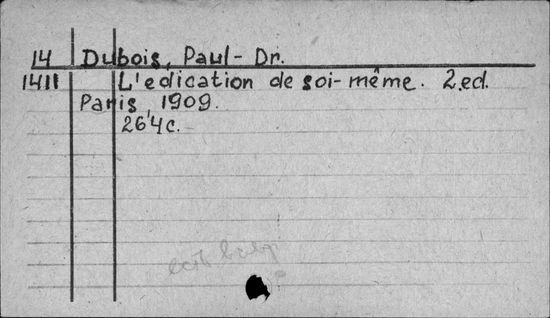 14 Dubois, Paul - Dr.
1411 L'edication de soi-même. 2.ed.
Paris, 1909.
264c.